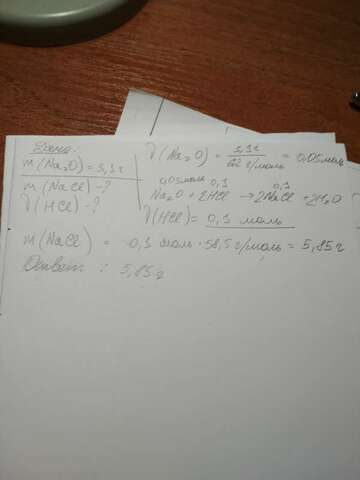 Дано:
m(Na₂O) = 3,1г
m(NaCl) - ?
ν(HCl) - ?
ν(Na₂O) = 3,1г / 62 г/моль = 0,05 моль
0,05 моль 0,1 0,1
Na₂O + 2HCl → 2NaCl + H₂O
ν(HCl) = 0,1 моль
m(NaCl) = 0,1 моль · 58,5 г/моль = 5,85 г
Ответ: 5,85 г